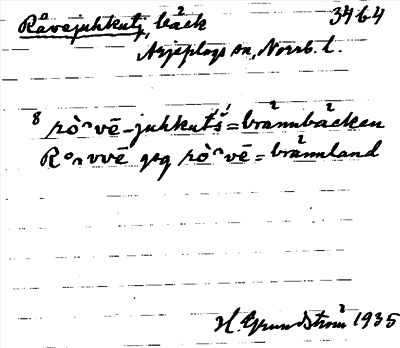 Råvejuhkutj, bäck 3464
Arjeplogs sn, Norrb. l.
8 rò̭vē-juhkut´š´ = brännbäcken
R vvē gq rò̭vē = brännland
H. Grundström 1935